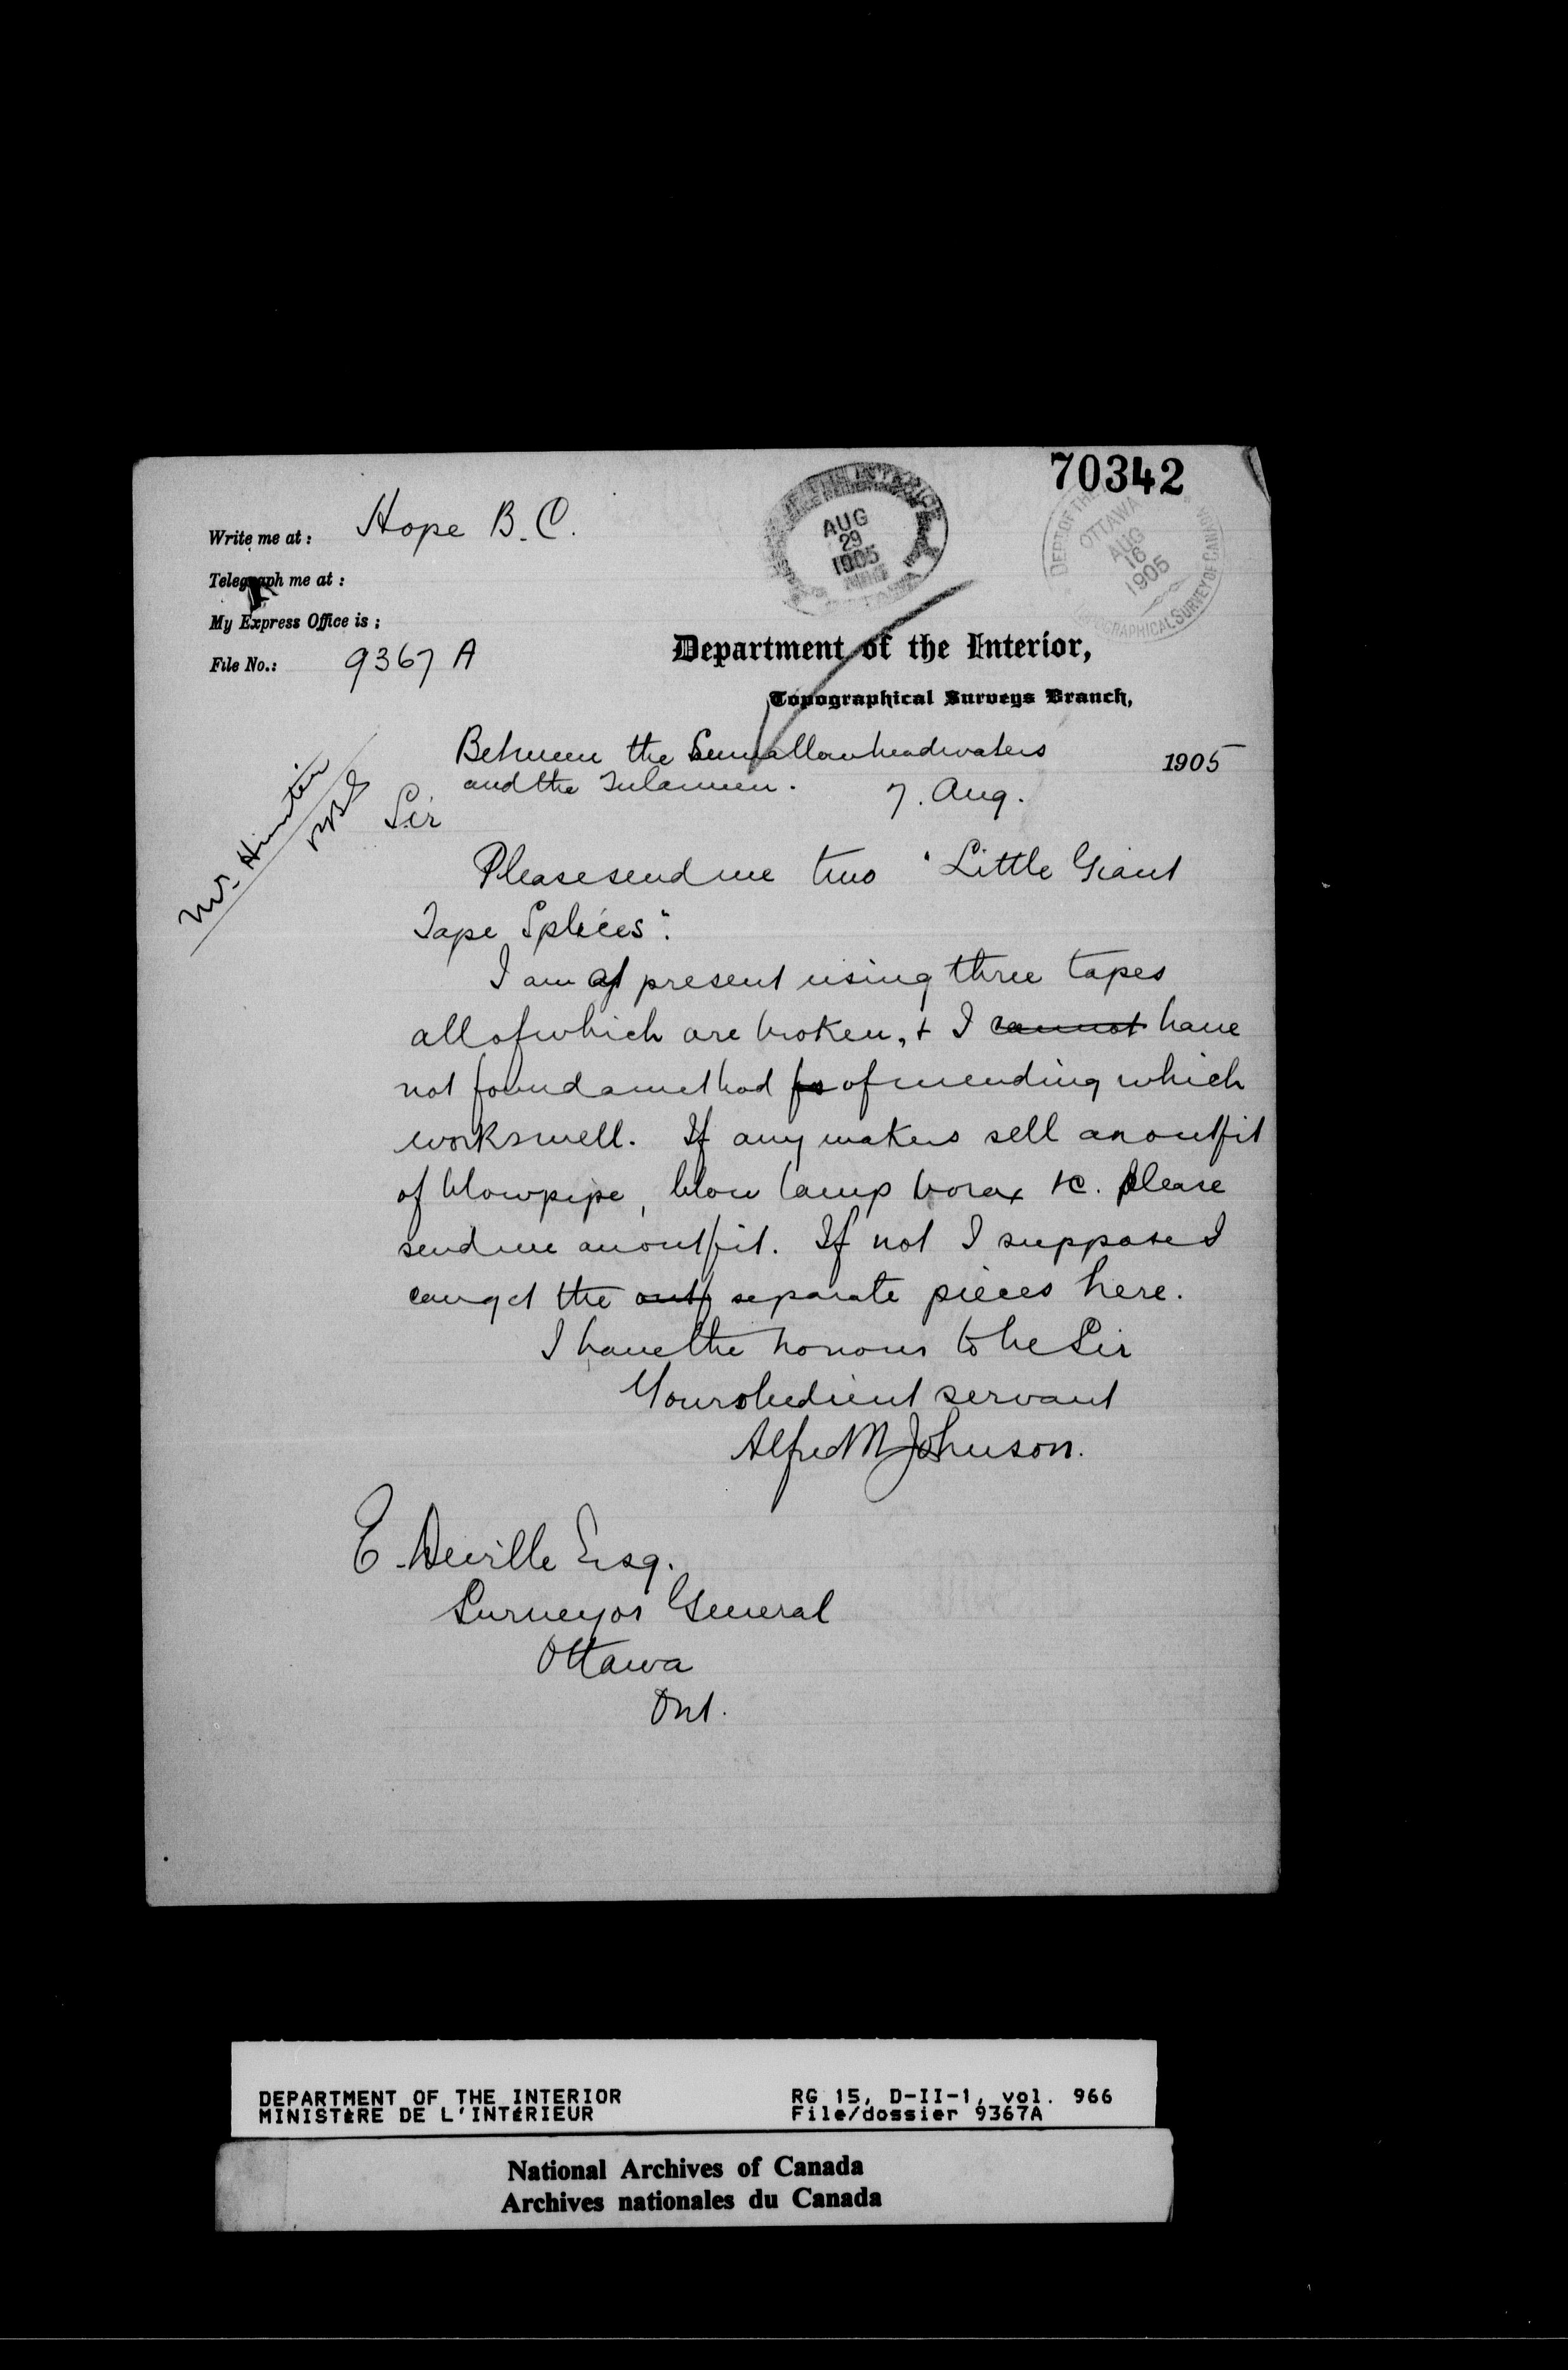 70342
AUG
29
1905
DEPT OF THE
OTTAWA
AUG
16
1905
TOPOGRAPHICAL SURVEY OF CANADA
Write me at : Hope B.C.
Telegraph me at :
My Express Office is :
File No.: 9367 A
Department of the Interior,
Topographical Surveys Branch,
Between the Sumallow headwaters 1905
and the Tulameen. 7. Aug.
Mr. Hunter
Sir
Please send me two "Little Giant
Tape Splices".
I am at present using three tapes
all of which are broken, + I cannot have
not found a method fo of mending which
works well. If any makers sell an outfit
of blowpipe, blow lamp borax &c. please
send me an outfit. If not I suppose I
can get the outf separate pieces here.
I have the honour to be Sir
Your obedient servant
Alfred M Johnson.
E. Deville Esq.
Surveyor General
Ottawa
Ont.
DEPARTMENT OF THE INTERIOR RG 15, D-II-1, vol. 966
MINISTÈRE DE L'INTÉRIEUR File/dossier 9367A
National Archives of Canada
Archives nationales du Canada